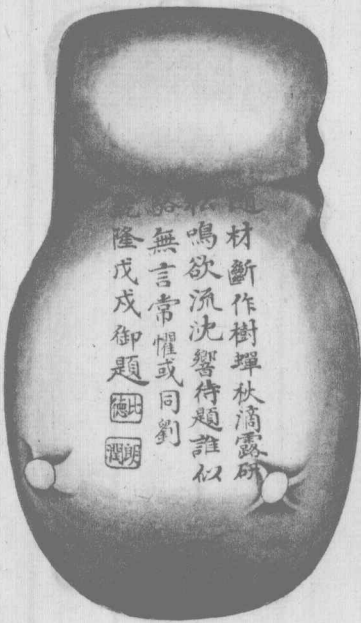 材斵作樹蟬秋滴露研
松鳴欲流沈響待題誰似
駱無言常懼或同劉
乾隆戊戌御題
比德
朗潤